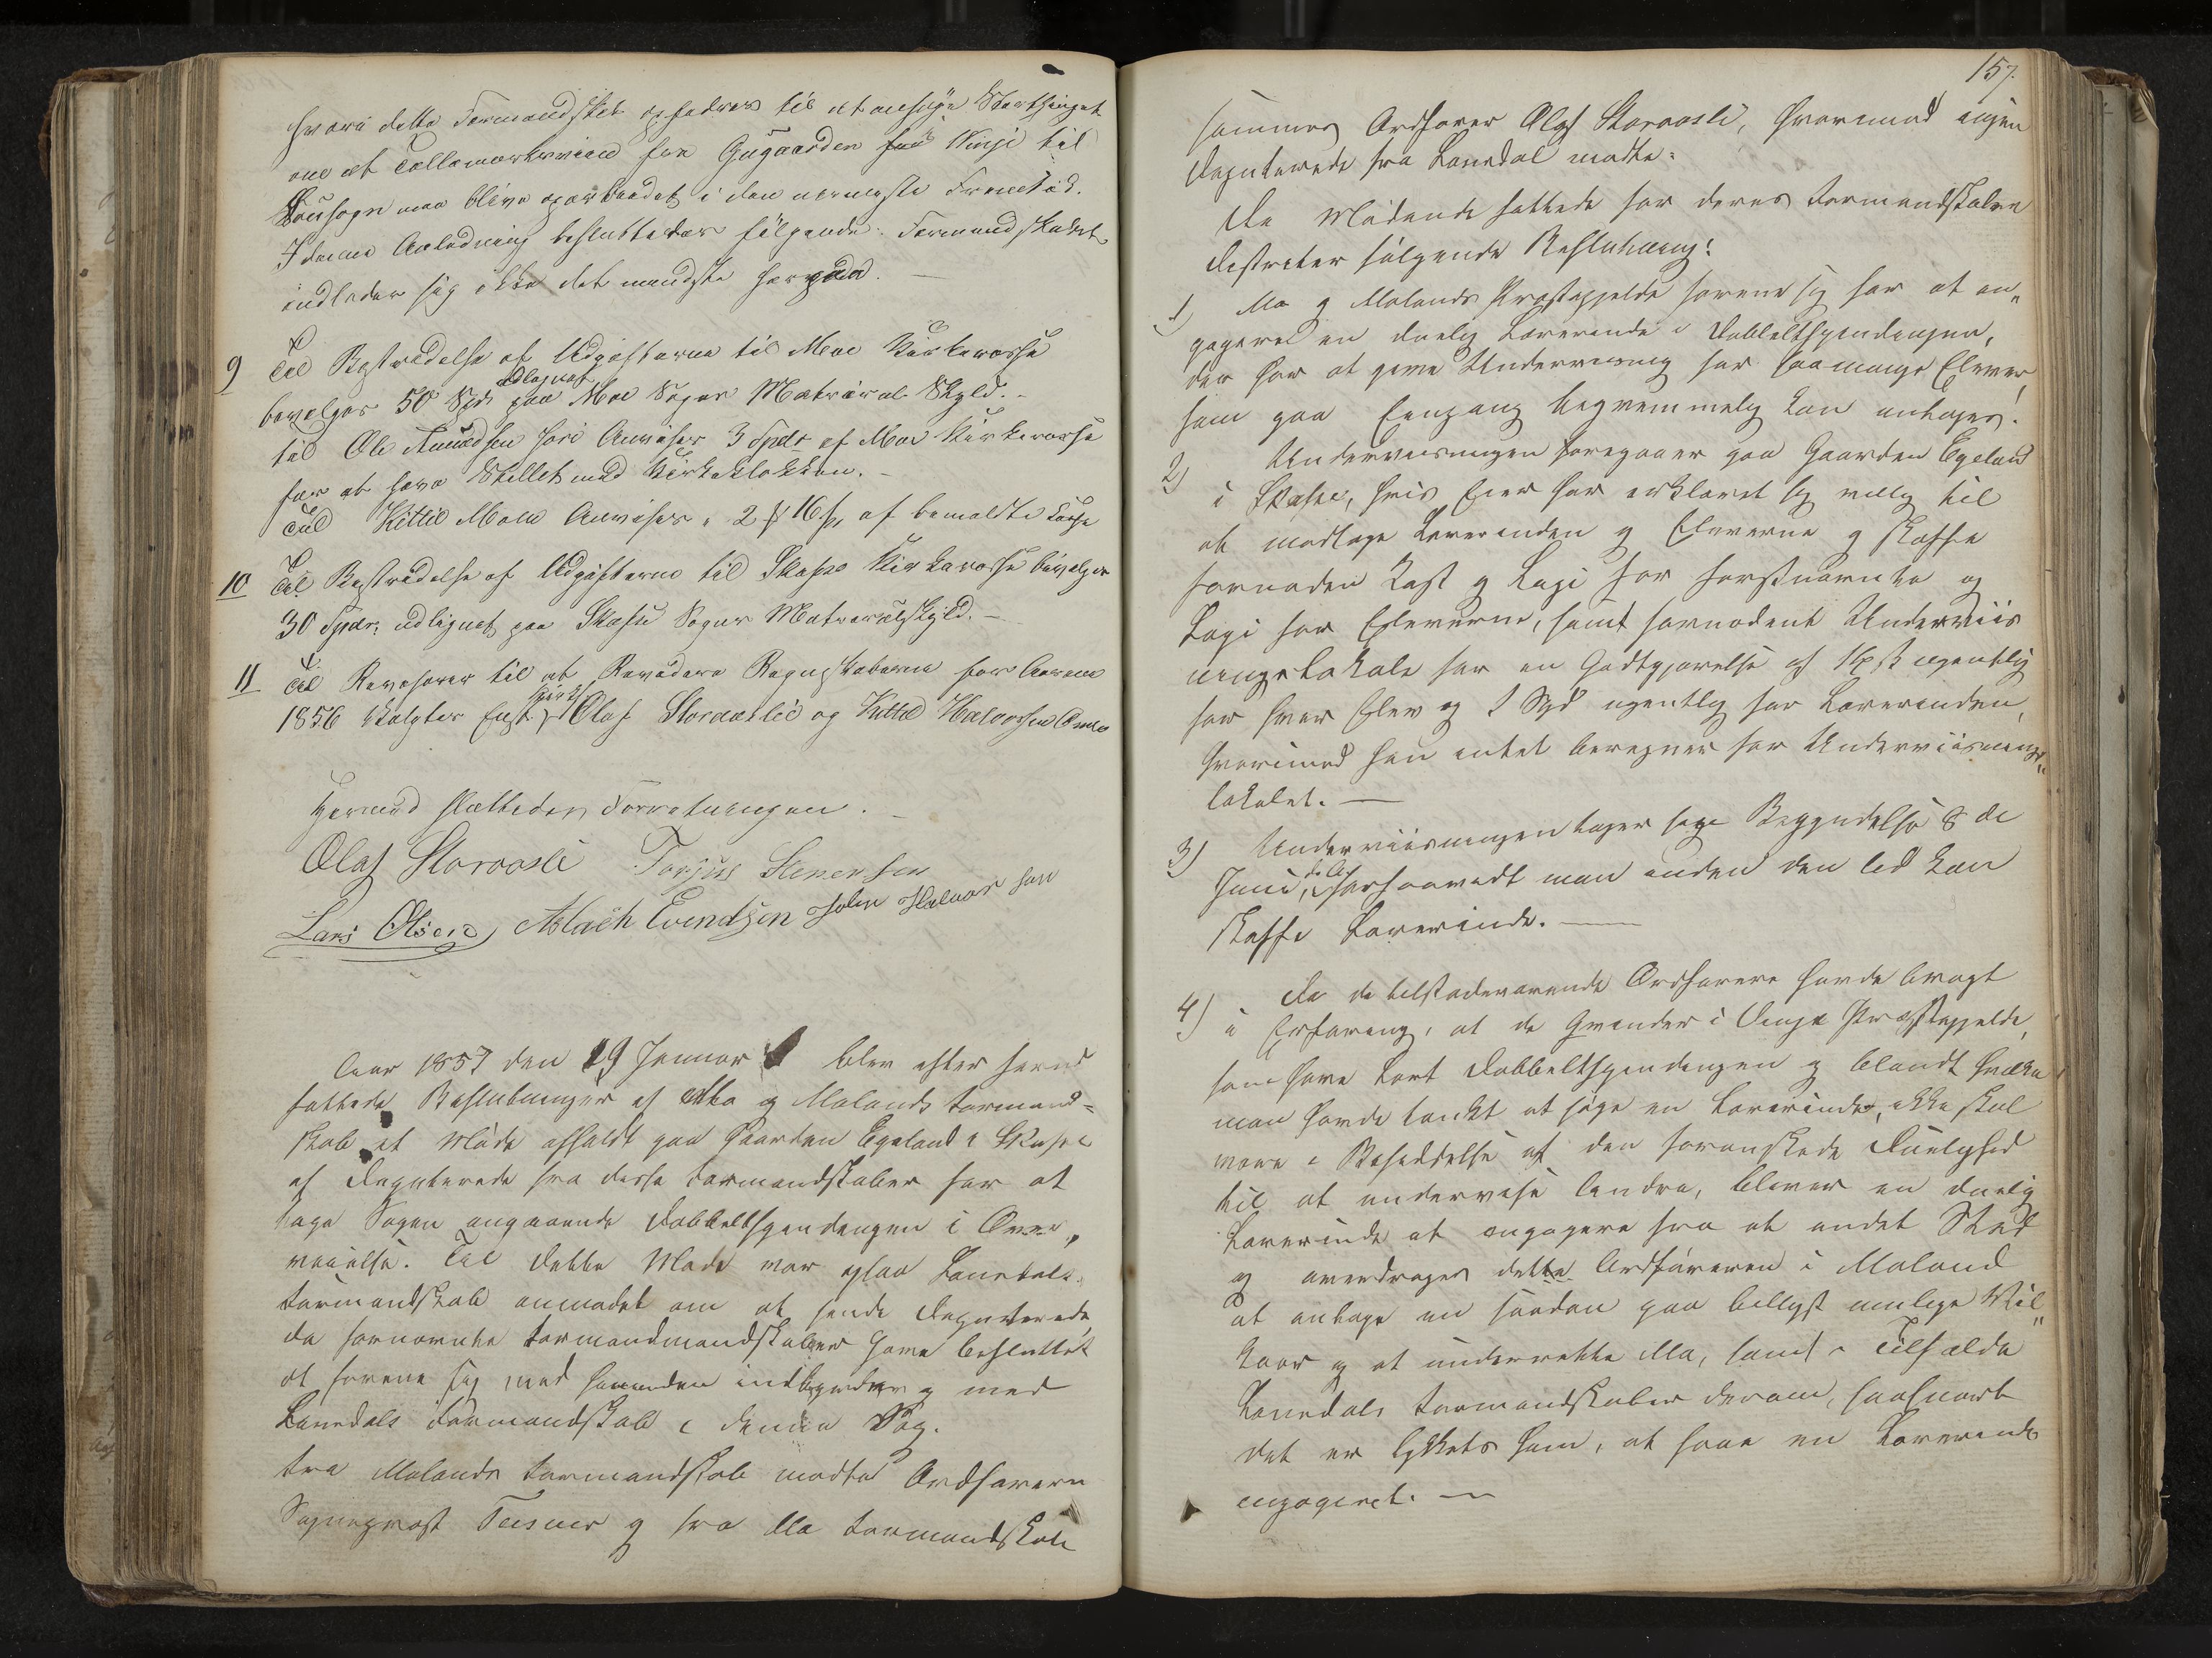 hvori dette Formandskab opfodres til at ansøge Storthinget
om at Tellemarksveien fra Gugaarden Vinje til
Housogn maa blive oparbeidet i den nermeste Fremtid.
I denne Anledning besluttedes følgende: Formandskabet
indlader sig ikke det mindste herpaa. —
9 Til Bestridelse af Udgifterne til Moe Kirkecasse
bevelges 50 Spd udlignet paa Moe Sogns Matricul Skyld. –
til Ole Amundsen Anvises 3 Spdr af Moe Kirkecasse
for at have Stillet med Kirkeklokken. –
Til Kittil Moen Anvises 2 ß 16 s, af bemeldte Casse
10 Til Bestridelse af Udgifterne til Skafse Kirkecasse bevelges
30 Spdr: udlignet paa Skafse Sogns Matriculskyld. –
11 Til Revisorer til at Revidere Regnskaberne for Aarene
1856 Valgtes Olaf Storaaslie og Kittil Halvorsen
Hermed sluttedes Forretningen. –
Olaf Storoosli Torjus Stenersen
Lars Olsen, Aslach Evendsen John Halvorsen
Aar 1857 den 29 Januar blev efter herom
fattede Beslutninger af Mo og Molands Formand=
skab et Møde afholdt paa Gaarden Egeland i Skafse
af Deputerede fra disse Formandskaber for at
tage Sagen angaaende Dobbeltspindingen i Over„
veielse. Til dette Møde var ogsaa Laurdals
Formandskab anmodet om at sende Deputerede,
da fornævnte Formandmandskaber have besluttet
at forene sig med hinanden indbyrdes og med
Laurdals Formandskab i denne Sag.
Fra Molands Formandskab mødte Ordføreren
Sogneprest Teisner og fra Mo Formandskab
157.
sammes Ordfører Olaf Storoosli, hvorimod ingen
Deputerede fra Laurdal mødte.
De Mødende fattede for deres Formandskabs
Distrikter følgende Beslutning:
1) Mo og Molands Præstegjelde forene sig for at en„
gagere en duelig Lærerinde i Dobbeltspindingen,
der har at give Underviisning for saamange Elever,
som paa Eengang begvemmelig kan antages.
2) Underviisningen foregaaer paa Gaarden Egeland
i Skafse, hvis Eier har erklæret sig villig til
at modtage Lærerinden og Eleverne og skaffe
fornøden Kost og Logi for førstnævnte og
Logi for Eleverne, samt fornødent Underviis
ningslokale for en Godtgjørelse af 16 ß ugentlig
for hver Elev og 1 Spd ugentlig for Lærerinden,
hvorimod han intet beregner for Underviisnings„
lokalet. —
3) Underviisningen tager sin Begyndelse 8 de
Juni d. A., forsaavidt man inden den Tid kan
skaffe Lærerinde. —
4) Da de tilstedeværende Ordførere havde bragt
i Erfaring, at de Qvinder i Vinje Præstegjelde,
som have lært Dobbeltspindingen og blandt hvilke
man havde tænkt at søge en Lærerinde, ikke skul
være i Besiddelse af den forønskede Duelighed
til at undervise Andre, bliver en duelig
Lærerinde at engagere fra et andet Sted
og overdrages dette Ordføreren i Moland
at antage en saadan paa billigst mulige Vil„
kaar og at underrette Mo, samt i Tilfælde
Laurdals Formandskaber derom, saasnart
det er lykkets ham, at faae en Lærerinde
engageret. —